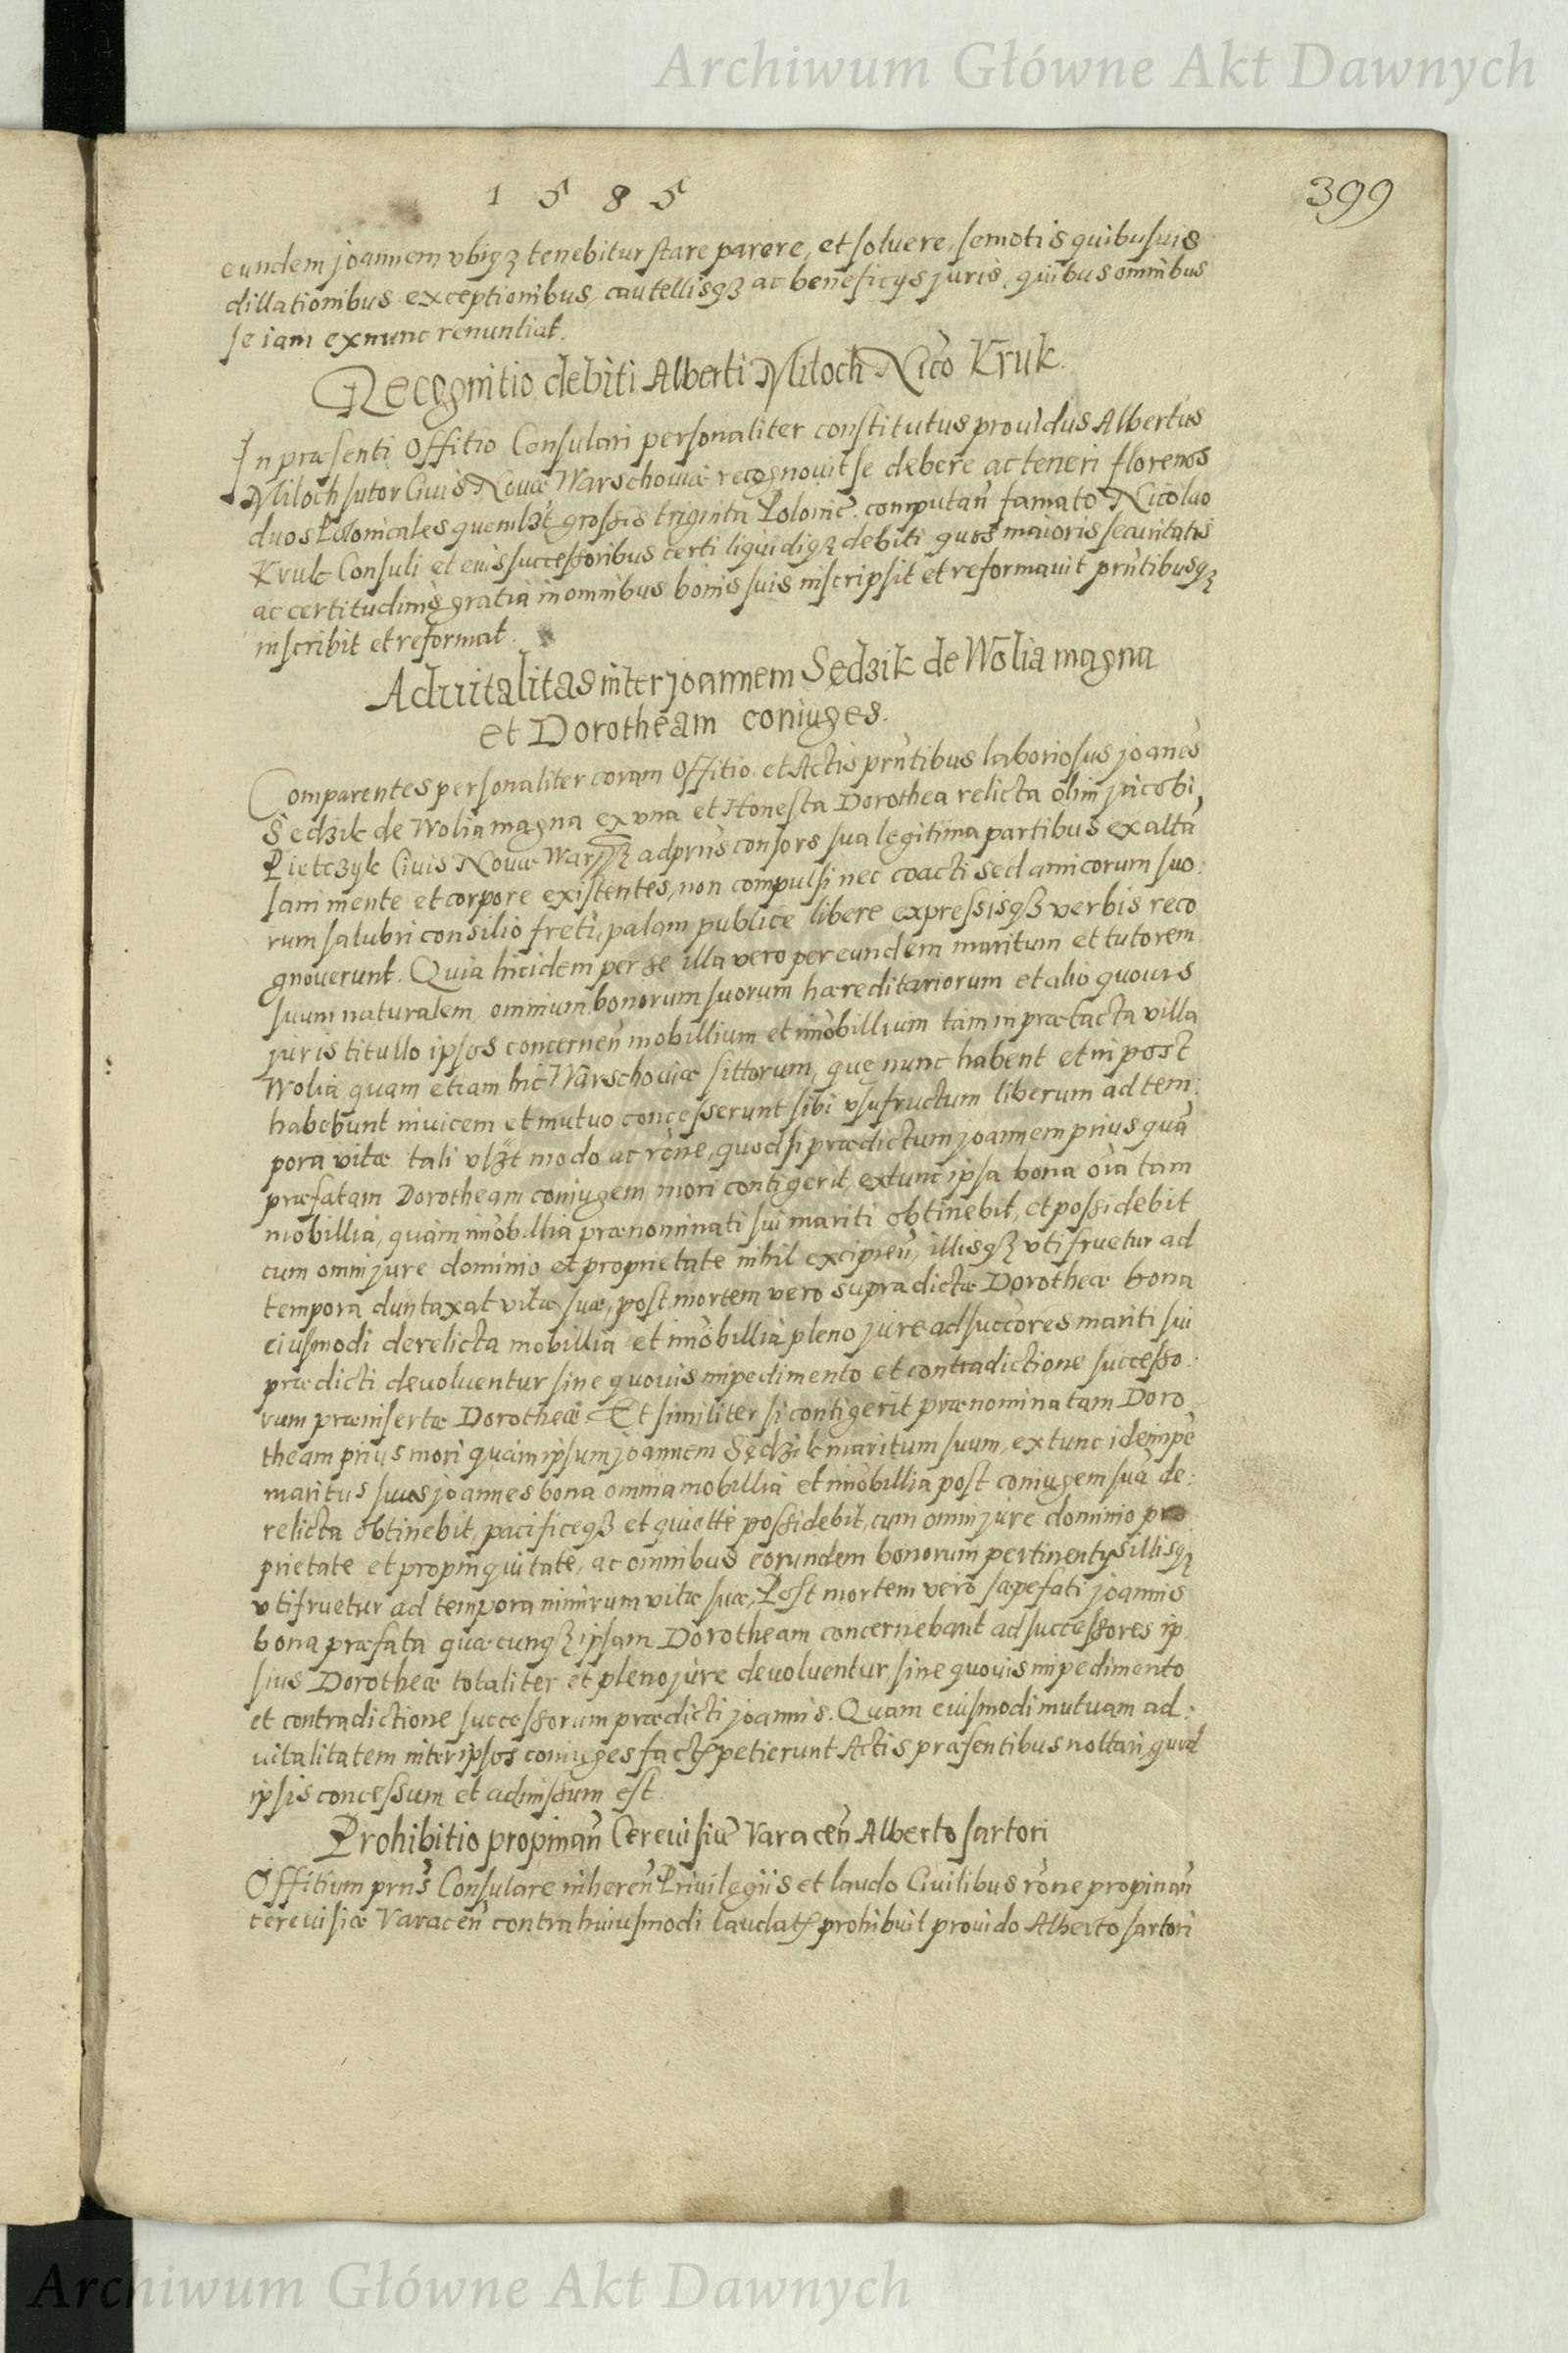 Archiwum Główne Akt Dawnych
1 5 8 5
399
eundem joannem vbiqȝ tenebitur stare parere, et soluere, semotis quibusuis
dillationibus exceptionibus, cautellisqȝ ac beneficijs juris, quibus omnibus
se iam exnunc renuntiat.
Recognitio debiti Alberti Miloch Nico Kruk.
In præsenti Offitio Consulari personaliter constitutus prouidus Albertus
Miloch sutor Ciuis Nouæ Warschouiæ recognouit se debere ac teneri florenos
duos Polonicales quemlȝt grossis triginta Polonic̄. computan̄ famato Nicolao
Kruk Consuli et eius successoribus certi liquidiqȝ debiti quos maioris securitatis
ac certitudinis gratia in omnibus bonis suis inscripsit et reformauit prn̄tibusqȝ
inscribit et reformat.
Aduitalitas inter joannem Sędzik de Wolia magna
et Dorotheam coniuges.
Comparentes personaliter coram Offitio et Actis prn̄tibus laboriosus joanēs
Sedzik de Wolia magna ex vna et Honesta Dorothea relicta olim jacobi
Pietczyk Ciuis Nouæ Warſſȝ ad prn̄s consors sua legitima partibus ex altā
sani mente et corpore existentes, non compulsi nec coacti sed amicorum suo:
rum salubri consilio freti, palam publice libere expressisqȝ verbis reco
gnouerunt. Quia hi idem per se illa vero per eundem maritum et tutorem
suum naturalem, omnium bonorum suorum hæreditariorum et alio quouis
juris titullo ipsos concernen̄ mobillium et im̄obillium tam in prætacta villa
Wolia quam etiam hic Warschouiæ sittorum, quę nunc habent et in post
habebunt inuicem et mutuo concesserunt sibi vsufructum liberum ad tem:
pora vitæ tali vlȝt modo ac rōne, quod si prædictum joannem prius quā
præfatam Dorotheam coniugem mori contigerit, extunc ipsa bona oīa tam
mobillia, quam im̄obillia prænominati sui mariti obtinebit, et possidebit
cum omni jure dominio et proprietate nihil excipien̄, illisqȝ vti fruetur ad
tempora duntaxat vitæ suæ, post mortem vero supradictæ Dorotheæ bona
eiusmodi derelicta mobillia et im̄obillia pleno jure ad succōres mariti sui
prædicti deuoluentur sine quouis impedimento et contradictione successo:
rum præinsertæ Dorotheæ. Et similiter si contigerit prænominatam Doro
theam prius mori quam ipsum joannem Sędzik maritum suum, extunc idem ipē
maritus suus joannes bona omnia mobillia et im̄obillia post coniugem suā de:
relicta obtinebit, pacificeqȝ et quiette possidebit, cum omni jure dominio pro
prietate et propinquitate, ac omnibus eorundem bonorum pertinentijs illisqȝ
vtifruetur ad tempora nimirum vitæ suæ, Post mortem vero sæpefati joannis
bona præfata quæcunqȝ ipsam Dorotheam concernebant ad successores ip
sius Dorotheæ totaliter et pleno jure deuoluentur, sine quouis impedimento
et contradictione successorum prædicti joannis. Quam eiusmodi mutuam ad:
uitalitatem inter ipsos coniuges fact petierunt Actis præsentibus nottari, quod
ipsis concessum et admissum est.
Prohibitio propinan̄ Cereuisiæ Varacen̄ Alberto sartori
Offitium prn̄s Consulare inheren̄ Priuilegiis et laudo Ciuilibus rōne propinan̄
cereuisiæ Varacen̄ contra huiusmodi laudat prohibuit prouido Alberto sartori
Archiwum Główne Akt Dawnych